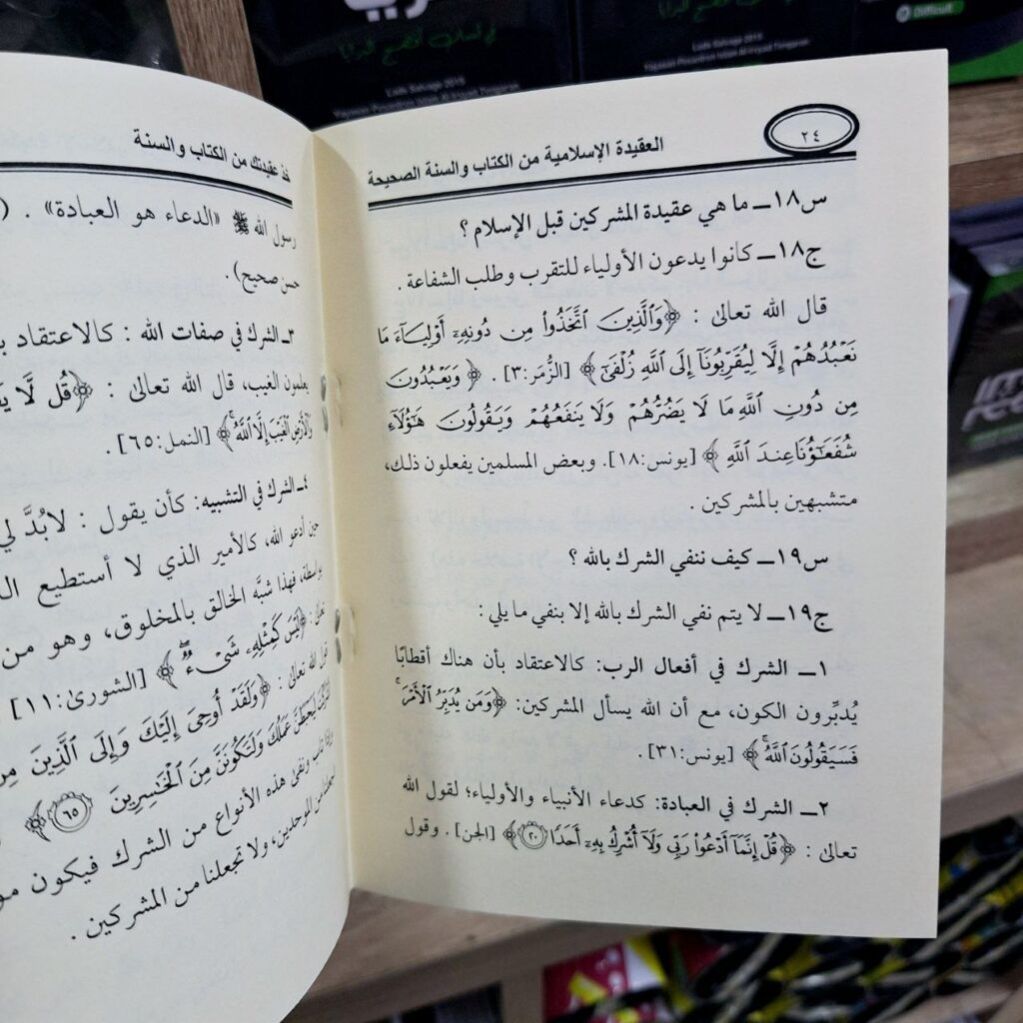 ٢٤
العقيدة الإسلامية من الكتاب والسنة الصحيحة
س١٨ــ ما هي عقيدة المشركين قبل الإسلام ؟
ج١٨ــ كانوا يدعون الأولياء للتقرب وطلب الشفاعة .
قال الله تعالى : ﴿وَالَّذِينَ اتَّخَذُوا مِن دُونِهِ أَوْلِيَاءَ مَا
نَعْبُدُهُمْ إِلَّا لِيُقَرِّبُونَا إِلَى اللَّهِ زُلْفَى﴾ [الزُّمَر:٣] . ﴿وَيَعْبُدُونَ
مِن دُونِ اللَّهِ مَا لَا يَضُرُّهُمْ وَلَا يَنفَعُهُمْ وَيَقُولُونَ هَؤُلَاءِ
شُفَعَاؤُنَا عِندَ اللَّهِ﴾ [يونس:١٨]. وبعض المسلمين يفعلون ذلك،
متشبهين بالمشركين .
س١٩ــ كيف ننفي الشرك بالله ؟
ج١٩ــ لا يتم نفي الشرك بالله إلا بنفي ما يلي :
١ــ الشرك في أفعال الرب: كالاعتقاد بأن هناك أقطابًا
يُدبِّرون الكون، مع أن الله يسأل المشركين: ﴿وَمَن يُدَبِّرُ الْأَمْرَ
فَسَيَقُولُونَ اللَّهُ﴾ [يونس:٣١].
٢ــ الشرك في العبادة: كدعاء الأنبياء والأولياء؛ لقول الله
تعالى : ﴿قُلْ إِنَّمَا أَدْعُوا رَبِّي وَلَا أُشْرِكُ بِهِ أَحَدًا ٢٠﴾ [الجن] . وقول
خذ عقيدتك من الكتاب والسنة
رسول الله ﷺ «الدعاء هو العبادة» . (
حسن صحيح) .
٣ــ الشرك في صفات الله : كالاعتقاد
يعلمون الغيب، قال الله تعالى : ﴿قُل لَّا
وَالْأَرْضِ الْغَيْبَ إِلَّا اللَّهُ﴾ [النمل:٦٥] .
٤ــ الشرك في التشبيه: كأن يقول : لابُدَّ
حين أدعو الله، كالأمير الذي لا أستطيع
بواسطة، فهذا شبَّه الخالق بالمخلوق، وهو من
تعالى : ﴿لَيْسَ كَمِثْلِهِ شَيْءٌ﴾ [الشورى:١١]
قول الله تعالى : ﴿وَلَقَدْ أُوحِيَ إِلَيْكَ وَإِلَى الَّذِينَ
أَشْرَكْتَ لَيَحْبَطَنَّ عَمَلُكَ وَلَتَكُونَنَّ مِنَ الْخَاسِرِينَ ٦٥﴾
ونفى هذه الأنواع من الشرك فيكون
من الموحدين، ولا تجعلنا من المشركين .
Difficult